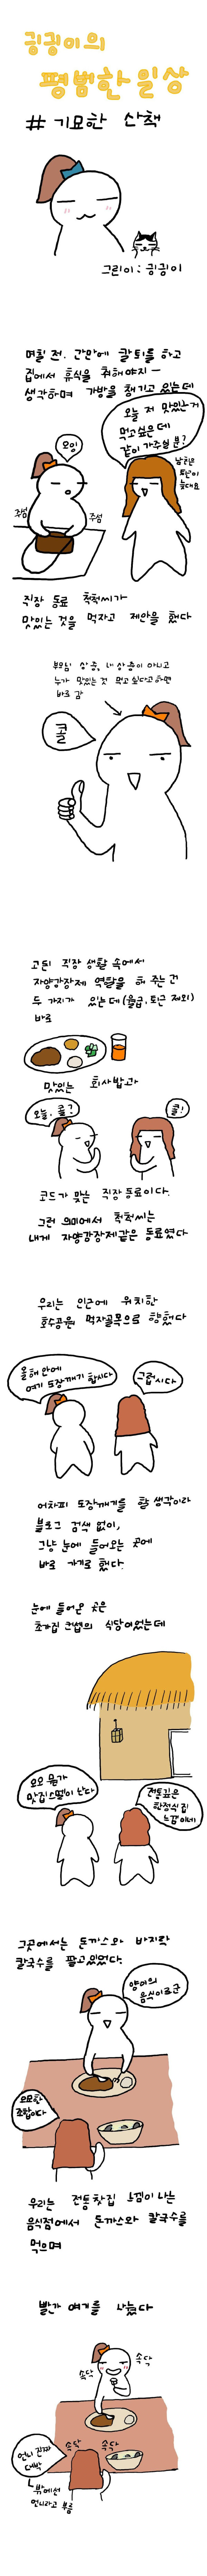 귕귕이의
평범한 일상
# 기묘한 산책
그린이 : 귕귕이
며칠 전. 간만에 칼퇴를 하고
집에서 휴식을 취해야지~
생각하며 가방을 챙기고 있는데
오늘 저 맛있는거
먹고싶은데
같이 가주실 분?
오잉
주섬
주섬
직장 동료 척척씨가
맛있는 것을 먹자고 제안을 했다
누가 맛있는 것 먹고 싶다고하면
바로 감
콜
고된 직장 생활 속에서
자양강장제 역할을 해 주는 건
두 가지가 있는데 (월급, 퇴근 제외)
바로
맛있는 회사밥과
오늘. 콜?
콜!
코드가 맞는 직장 동료이다.
그런 의미에서 척척씨는
내게 자양강장제같은 동료였다
우리는 인근에 위치한
호수공원 먹자골목으로 향했다
올해 안에
여기 도장깨기 합시다
그럽시다
어차피 도장깨기를 할 생각이라
블로그 검색 없이,
그냥 눈에 들어오는 곳에
바로 가기로 했다.
눈에 들어온 곳은
초가집 컨셉의 식당이었는데
오오 뭔가
맛집스멜이 난다
전통깊은
한정식집
느낌이네
그곳에서는 돈까스와 바지락
칼국수를 팔고있었다.
양이의
음식이로군
오묘한
조합이다
우리는 전통찻집 느낌이 나는
음식점에서 돈까스와 칼국수를
먹으며
빨간 얘기를 나눴다
속닥
속닥
속닥
속닥
언니 진짜
대박
밖에선
언니라고 부름